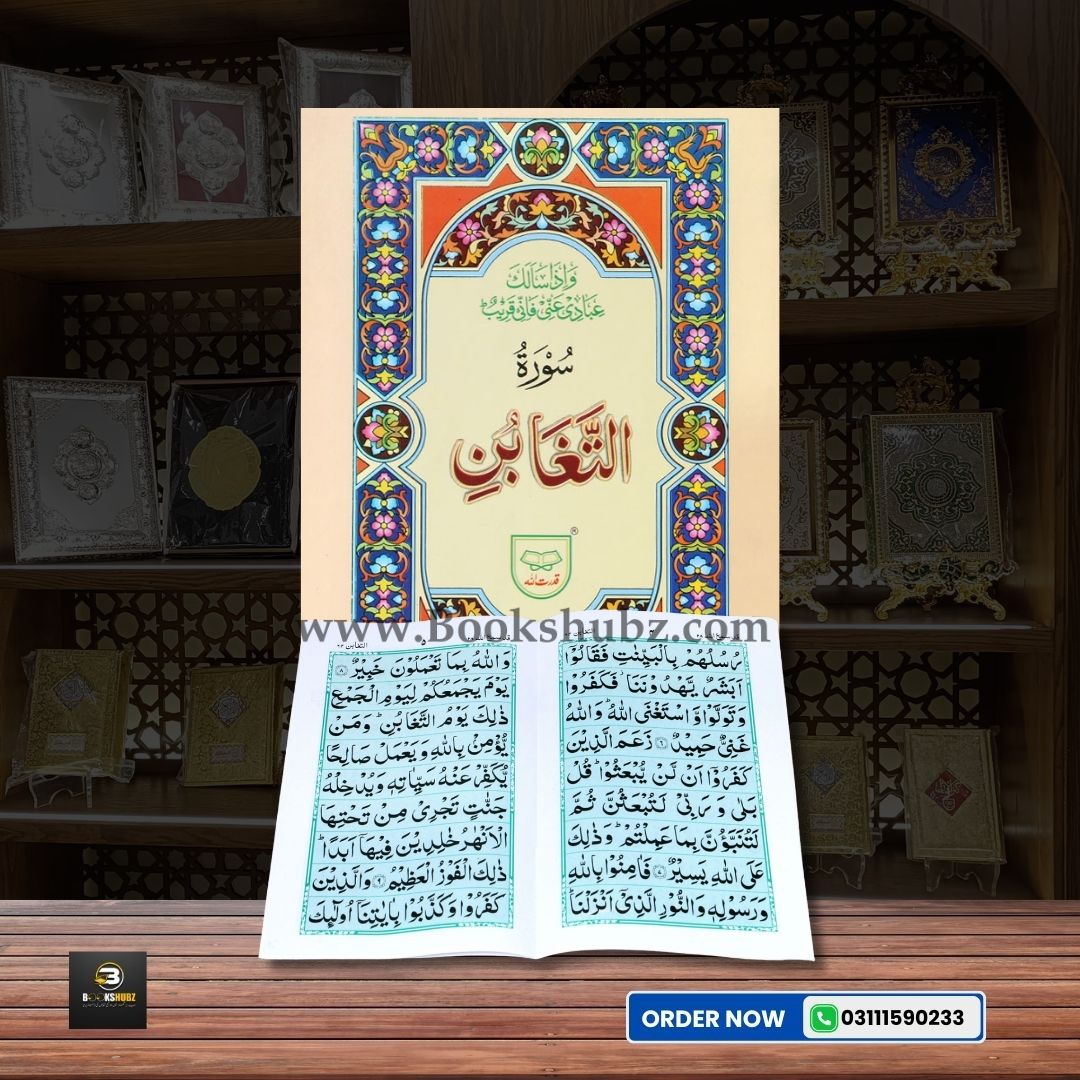 وَاِذَاسَاَلَكَ
عِبَادِیْ عَنِّیْ فَاِنِّیْ قَرِیْبٌ ؕ
سُوْرَةُ
التَّغَابُنِ
®
قدرت اللہ
www.Bookshubz.com
رُسُلُهُمْ بِالْبَيِّنٰتِ فَقَالُوْۤا
اَبَشَرٌ يَّهْدُوْنَنَا ؗ فَكَفَرُوْا
وَ تَوَلَّوْا وَّ اسْتَغْنَى اللّٰهُ ؕ وَ اللّٰهُ
غَنِیٌّ حَمِیْدٌ ۶ زَعَمَ الَّذِیْنَ
كَفَرُوْۤا اَنْ لَّنْ یُّبْعَثُوْا ؕ قُلْ
بَلٰى وَ رَبِّیْ لَتُبْعَثُنَّ ثُمَّ
لَتُنَبَّؤُنَّ بِمَا عَمِلْتُمْ ؕ وَ ذٰلِكَ
عَلَى اللّٰهِ یَسِیْرٌ ۷ فَاٰمِنُوْا بِاللّٰهِ
وَ رَسُوْلِهٖ وَ النُّوْرِ الَّذِیْۤ اَنْزَلْنَا ؕ
التغابن ۶۴
وَ اللّٰهُ بِمَا تَعْمَلُوْنَ خَبِیْرٌ ۸
یَوْمَ یَجْمَعُكُمْ لِیَوْمِ الْجَمْعِ
ذٰلِكَ یَوْمُ التَّغَابُنِ ؕ وَ مَنْ
یُّؤْمِنْۢ بِاللّٰهِ وَ یَعْمَلْ صَالِحًا
یُّكَفِّرْ عَنْهُ سَیِّاٰتِهٖ وَ یُدْخِلْهُ
جَنّٰتٍ تَجْرِیْ مِنْ تَحْتِهَا
الْاَنْهٰرُ خٰلِدِیْنَ فِیْهَاۤ اَبَدًا ؕ
ذٰلِكَ الْفَوْزُ الْعَظِیْمُ ۹ وَ الَّذِیْنَ
كَفَرُوْا وَ كَذَّبُوْا بِاٰیٰتِنَاۤ اُولٰٓىِٕكَ
BOOKSHUBZ
ORDER NOW 03111590233